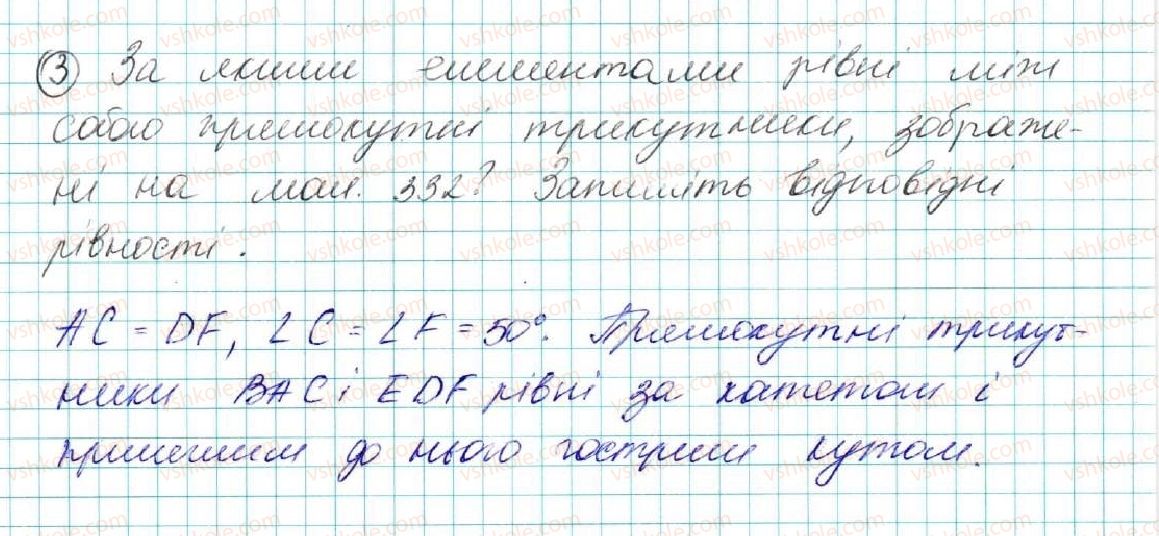 ③ За якими елементами рівні між
собою прямокутні трикутники, зображе-
ні на мал. 332? Запишіть відповідні
рівності.
AC = DF, ∠C = ∠F = 50°. Прямокутні трикут-
ники BAC і EDF рівні за катетом і
прилеглим до нього гострим кутом.